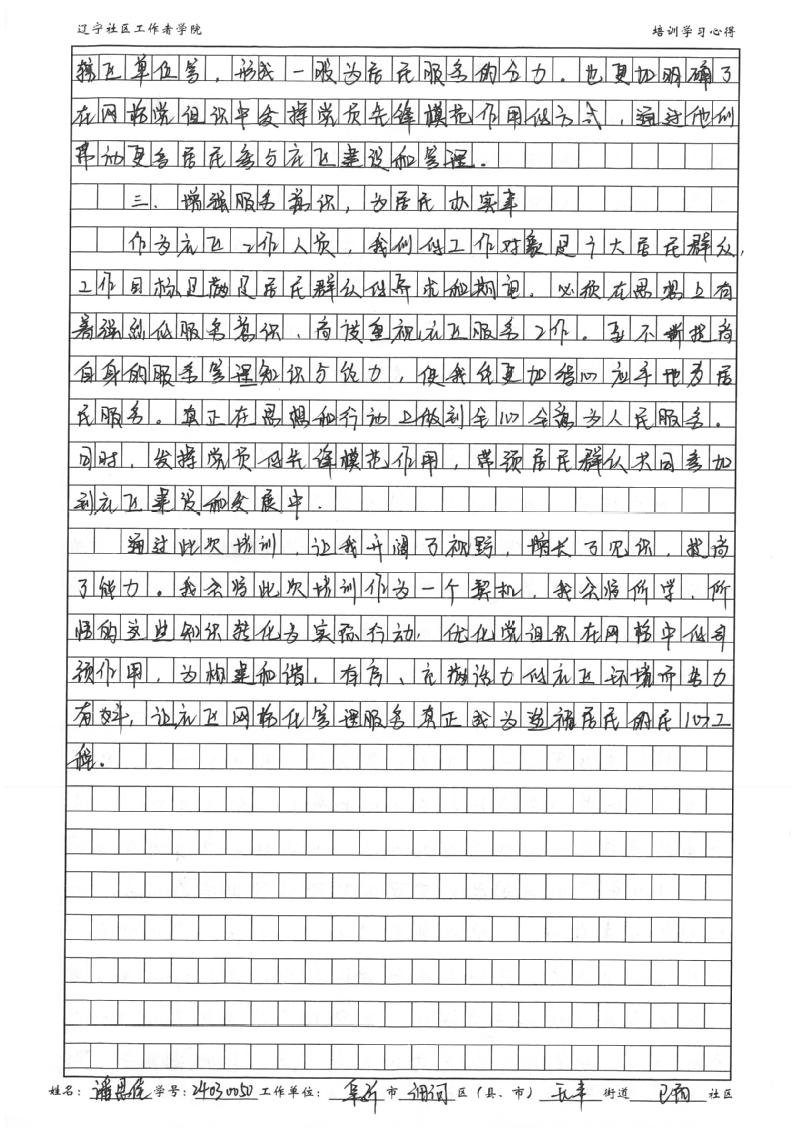 辽宁社区工作者学院 培训学习心得
辖区单位等，形成一股为居民服务的合力。也更加明确了
在网格党组织中发挥党员先锋模范作用的方式，通过他们
带动更多居民参与社区建设和管理。
三、增强服务意识，为居民办实事
作为社区工作人员，我们的工作对象是广大居民群众，
工作目标是满足居民群众的需求和期望。必须在思想上有
着强烈的服务意识，高度重视社区服务工作。要不断提高
自身的服务管理知识与能力，使我能更加得心应手地为居
民服务。真正在思想和行动上做到全心全意为人民服务。
同时，发挥党员的先锋模范作用，带领居民群众共同参加
到社区建设和发展中。
通过此次培训，让我开阔了视野，增长了见识，提高
了能力。我会将此次培训作为一个契机，我会将所学，所
悟的这些知识转化为实际行动，优化党组织在网格中的引
领作用，为构建和谐、有序、充满活力的社区环境而努力
奋斗，让社区网格化管理服务真正成为造福居民的民心工
程。
姓名： 潘思 学号：24030050 工作单位： 阜新 市 细河 区（县、市） 长丰 街道 社区